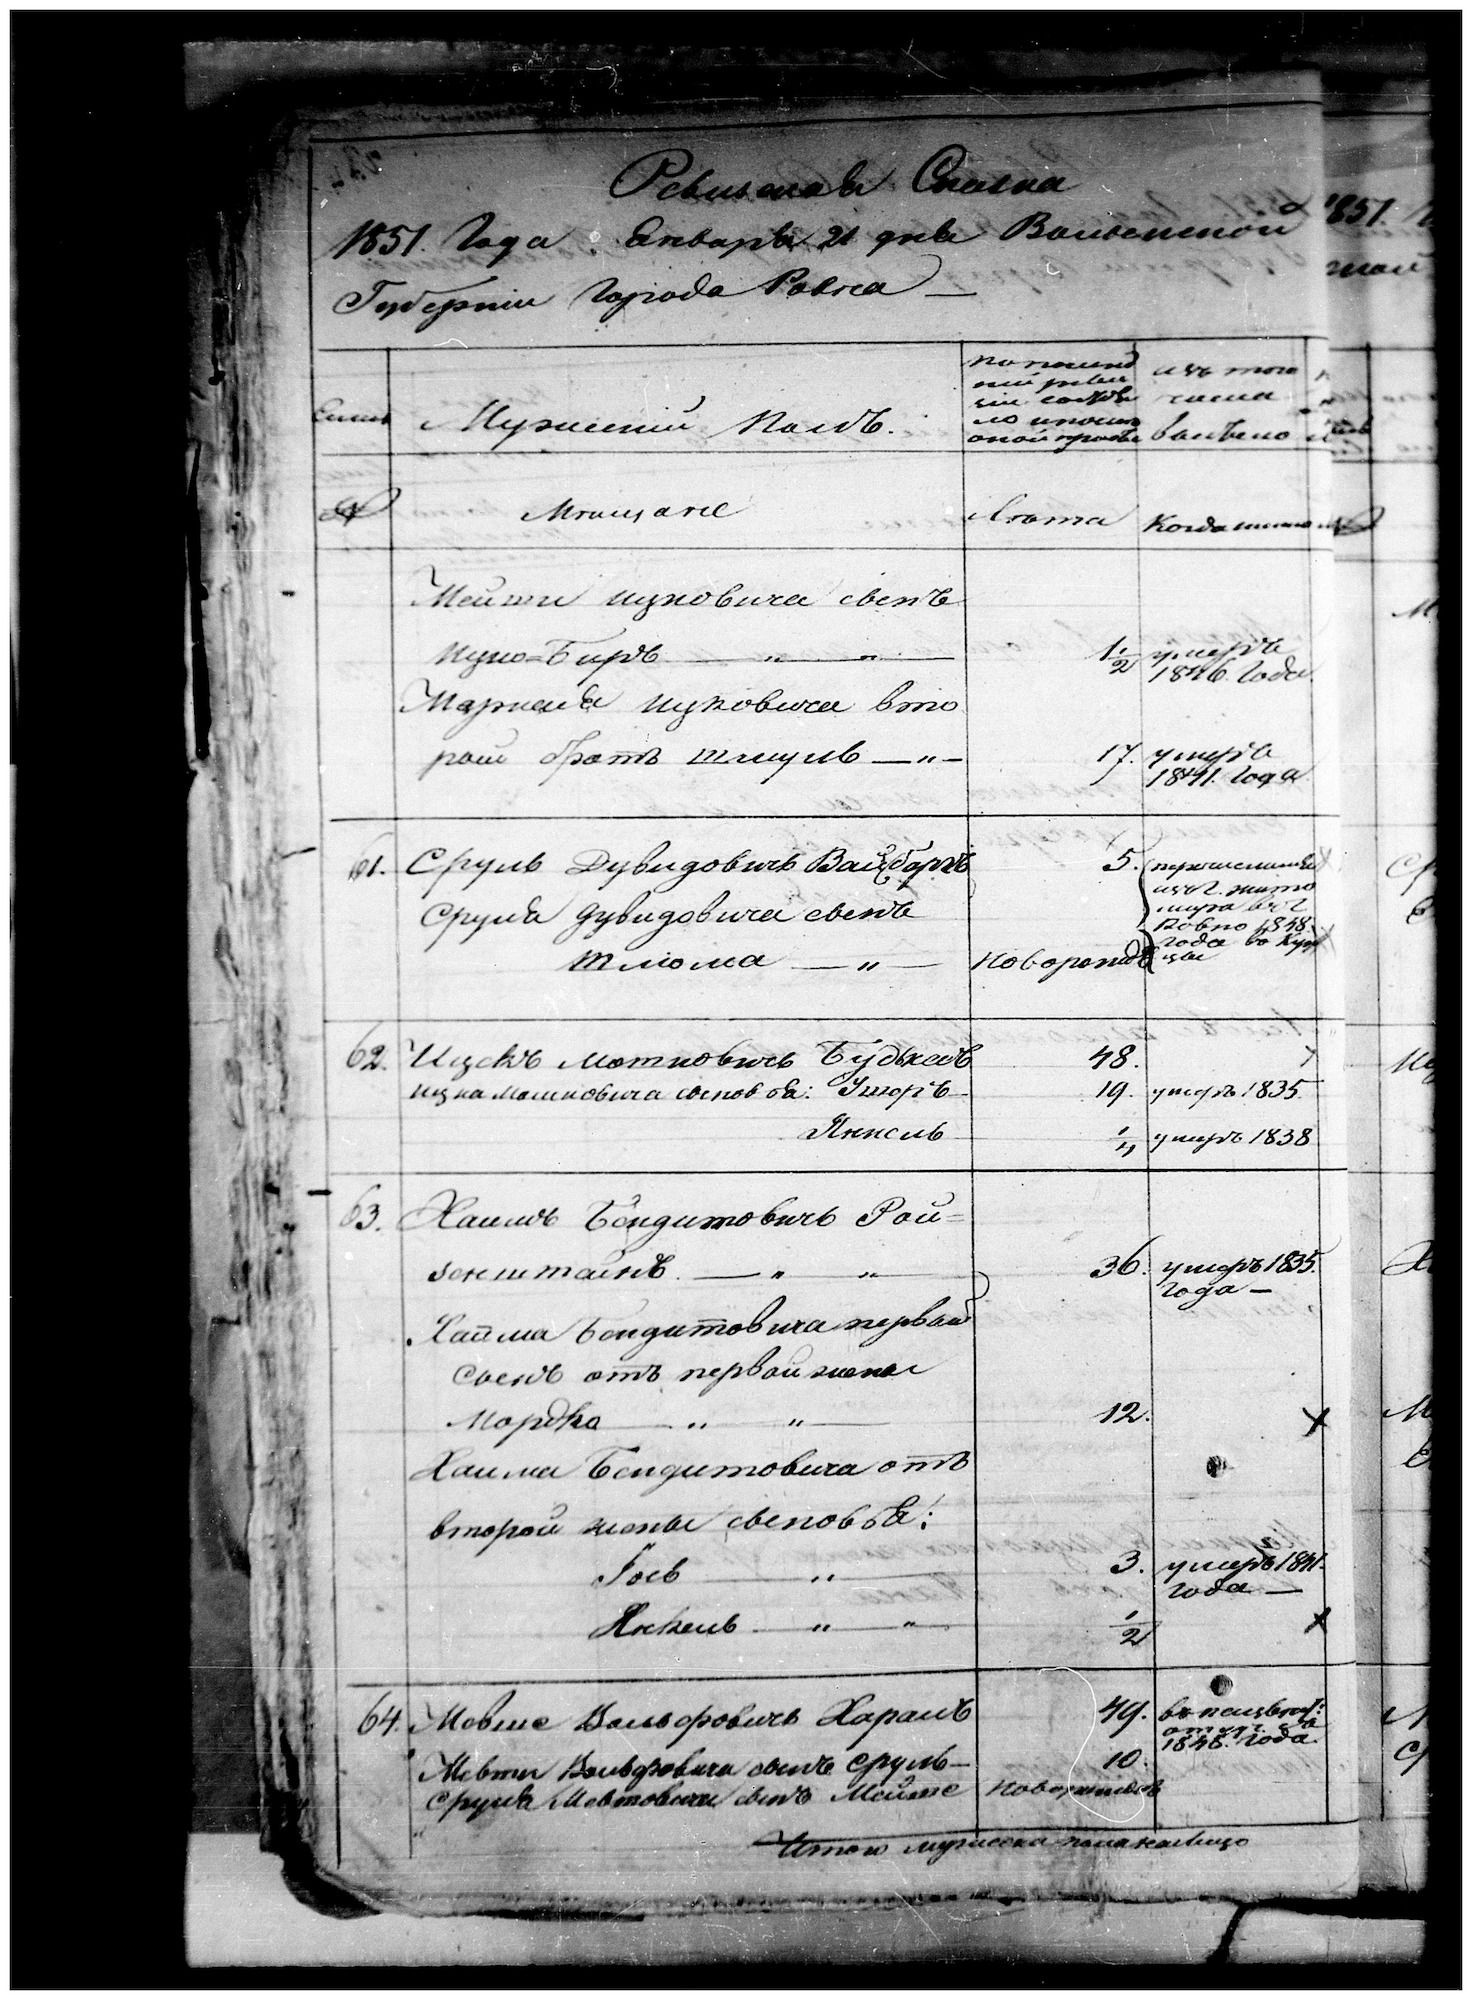 Ревизская Сказка
1851. Года Января 21 дня Волынской
Губернии Города Ровна —
Мужеский Полъ.
изъ того
числа
выбыло
Мещане
Лета
Когда именно
Мейши Ицковича сынъ
Ицко=Беръ — " — " —
1/2
умеръ
1846. Года.
Ицковича вто
рой братъ Шмуль — " —
17.
умеръ
1841. Года
61.
Сруль Дувидовичъ Вайсбергъ
5.
перечисленъ
изъ г. Жито
мира въ г.
Ровно 1848.
года въ Куп
цы
Сруля Дувидовича сынъ
Шлиома — " —
Новорожд
62.
Ицекъ Мошковичъ
48.
Ицка Мошковича сыновья:
19.
умеръ 1835.
Янкель
1/4
умеръ 1838
63.
Хаимъ Бендитовичъ Рой=
зенштейнъ. — " "
36.
умеръ 1835.
года —
Хаима Бендитовича первый
сынъ отъ первой жены
Мордко — " "
12.
Хаима Бендитовича отъ
второй жены сыновья:
3.
умеръ 1841.
года —
Янкель — " "
1/2
64.
Мовше Вольфовичъ Харашъ
49.
1848. Года
Мовши Вольфовича сынъ Сруль —
10.
Сруля Мовшовича сынъ Мейше
Новорожденъ
Итого мужеска пола налицо